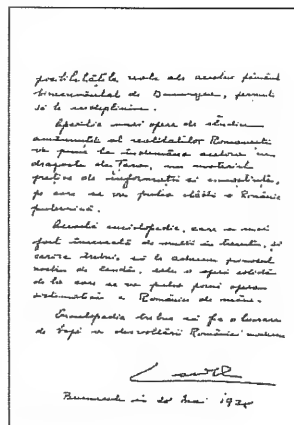 posibilitățile reale ale acestui pământ
binecuvântat de Dumnezeu, permit
să le îndeplinim.
Apariția unei opere de studiu
amănunțit al realităților Românești
va pune la îndemâna acelora cu
dragoste de Țara, un material
prețios de informații și
pe care se va putea clădi o Românie
puternică.
Această enciclopedie, care a mai
fost încercată de mulți în trecut, și
căreia trebuie să le aducem prinosul
nostru de laudă, este o operă solidă
de la care se va putea porni opera
a României de mâine.
Enciclopedia trebue să fie o lucrare
de bază a desvoltării României
București în 20 Mai 1938